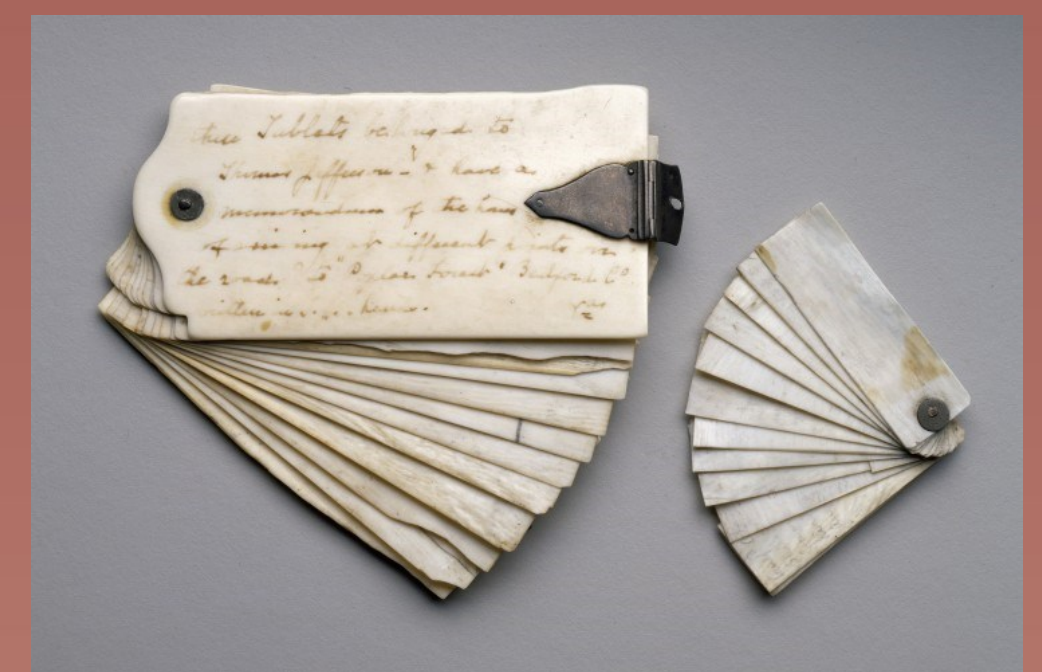 these Tablets belonged to
Thomas Jefferson - & have a
memorandum of the hours
of at different points on
the road to "Poplar Forest" Bedford Co
written in